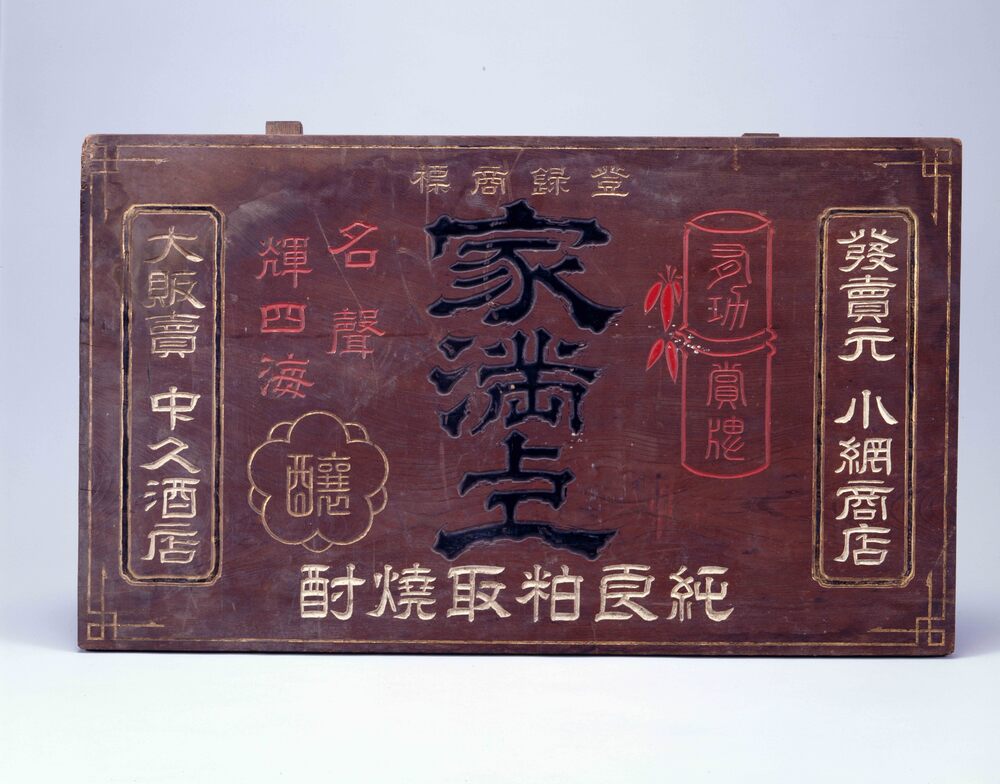 登録商標
發賣元 小網商店
有功賞牌
家満
名聲
輝四海
釀
純良粕取燒酎
大販賣 中久酒店